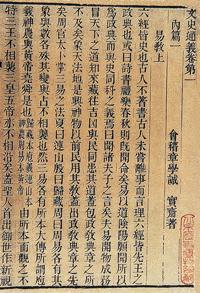 文史通義卷第一
內篇一
會稽章學誠 實齋著
易教上
六經皆史也古人不著書古人未嘗離事而言理六經皆先王之
政典也或曰詩書禮樂春秋則既聞命矣易以道陰陽願聞所以
為政典而與史同科之義焉曰聞諸夫子之言矣夫易開物成務
冒天下之道知來藏往吉凶與民同患其道蓋包政教典章之所
不及矣象天法地是興神物以前民用其教蓋出政教典章之先
矣周官太卜掌三易之法夏曰連山殷曰歸藏周曰周易各有其
象與數各殊其變與占不相襲也然三易各有所本大傳所謂庖
羲神農與黃帝堯舜是也歸藏本庖羲連山本神農周易本黃帝由所本而觀之不
特三王不相襲三皇五帝亦不相沿矣蓋聖人首出御世作新視